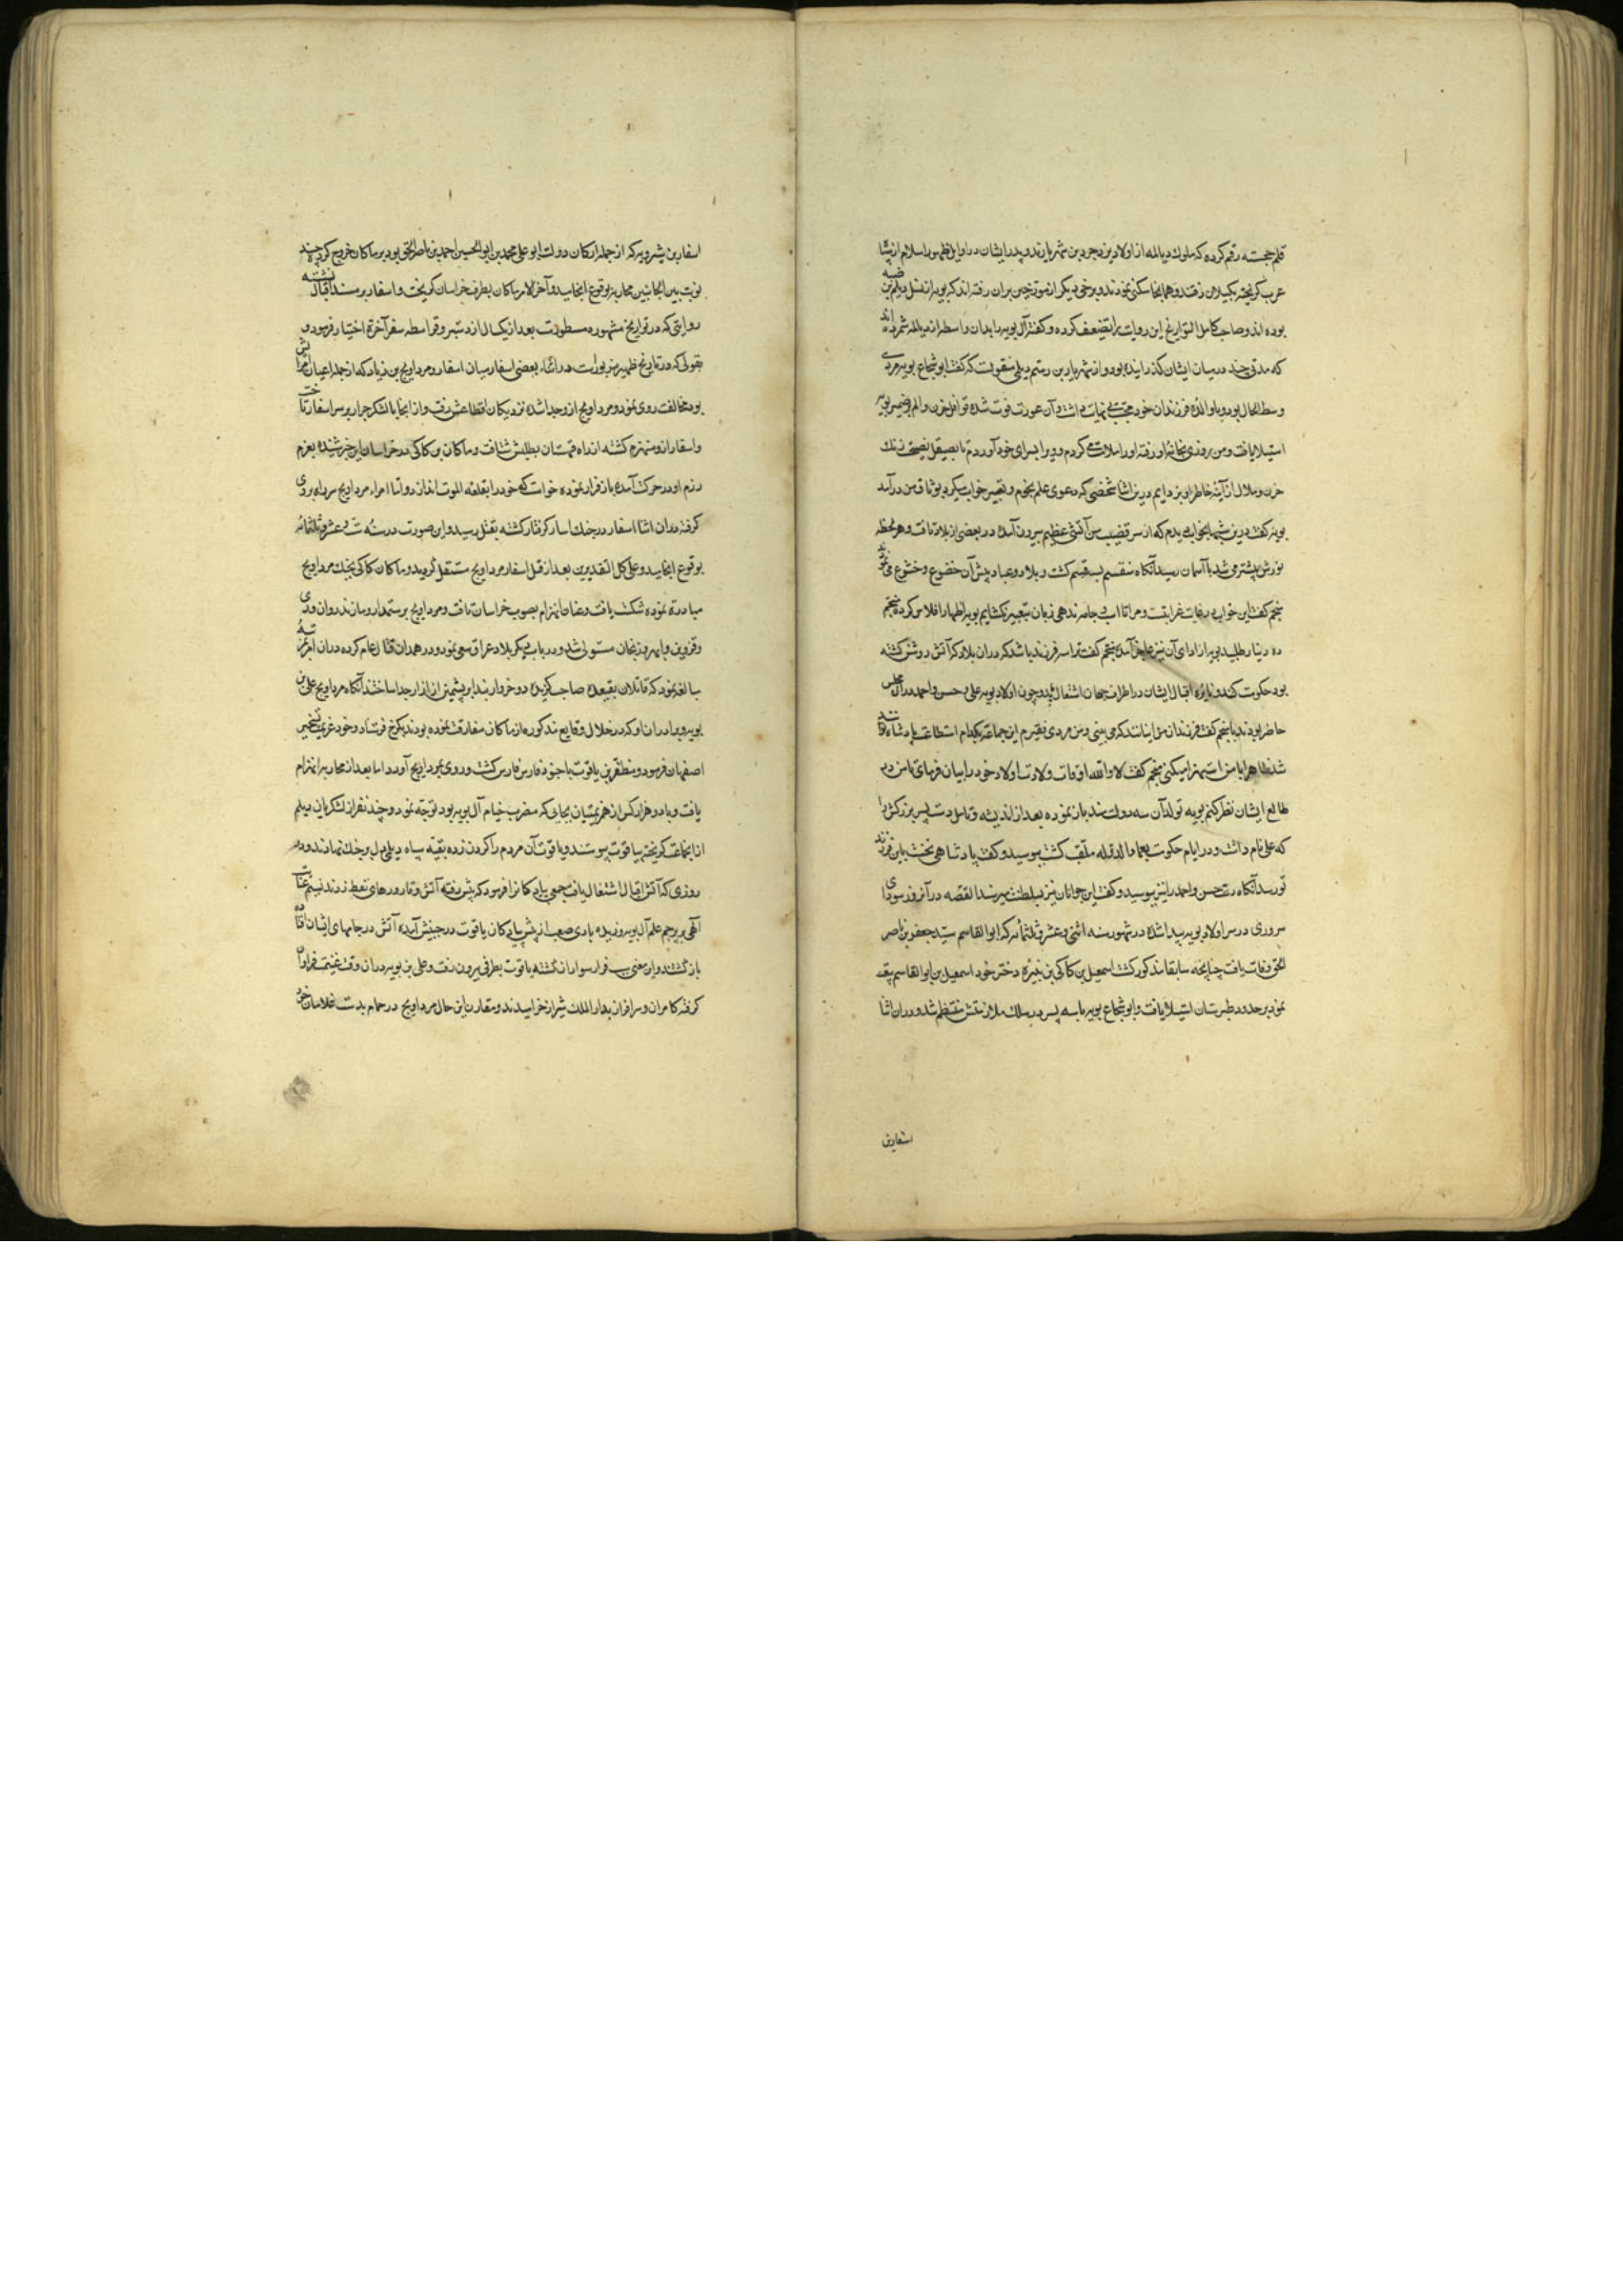 قلم خجسته رقم کرده که ملوک دیالمه از اولاد یزدجرد بن شهریارند و پدر ایشان در اوایل ظهور اسلام از پیش
عرب گریخته بگیلان رفتند و همانجا سکنی نمودند و برخی دیگر از مورخین بران رفته‌اند که بویه از نسل دیلم بن ضبه
بوده‌اند و صاحب کامل التواریخ این روایت را تضعیف کرده و گفته آل بویه را بدان واسطه از دیالمه شمرده‌اند
که مدتی چند در میان ایشان گذرانیده بودو از شهریار بن رستم دیلمی منقولست که گفت ابو شجاع بویه مردی
وسط الحال بود و با والده فرزندان خود محبت بی نهایت داشت و آن عورت فوت شده قوافل حزن و الم بر ضمیر بویه
استیلا یافت و من روزی بخانه او رفته او را ملامت می کردم و ویرا بسرای خود آوردم تا بصیقل نصیحت زنک
حزن و ملال از آینه خاطر او بزدایم درین اثنا شخصی که دعوی علم نجوم و تعبیر خواب میکرد بوثاق من در آمد
بویه گفت درین شبها بخواب دیدم که از سر قضیب من آتشی عظیم بیرون آمده در بعضی از بلاد تافت و هر لحظه
نورش بیشتر می شد تا بآسمان رسید آنگاه منقسم بسه قسم گشت و بلاد و عباد پیش آن خضوع و خشوع می نمودند
منجم گفت این خواب در غایت غرابتست و مرا تا اسب و جامه ندهی زبان بتعبیر نکشایم بویه اظهار افلاس کرده منجم
ده دینار طلبید بویه از ادای آن نیز عاجز آمده منجم گفت ترا سه فرزند باشد که دران بلاد که آتش روشن گشته
بود حکومت کنند و نایره اقبال ایشان در اطراف جهان اشتعال یابد و چون اولاد بویه علی و حسن و احمد در آن مجلس
حاضر بودند با منجم گفت فرزندان من اینانند که می بینی و من مردی فقیرم این جماعت بکدام استطاعت پادشاه توانند
شد ظاهرا با من استهزا میکنی منجم گفت لا والله اوقات ولادت اولاد خود را بیان فرمای تا من در
طالع ایشان نظر کنم بویه تولد آن سه دولتمند باز نموده بعد از اندیشه و تامل دست پسر بزرگش را
که علی نام داشت و در ایام حکومت بعماد الدوله ملقب گشت ببوسید و گفت پادشاهی نخست باین فرزند
تو رسد آنگاه دست حسن و احمد را نیز ببوسید و گفت این جوانان نیز بسلطنت میرسند القصه در آنروز سودای
سروری در سر اولاد بویه پیدا شده در شهور سنه اثنی و عشر و ثلثمائه که ابو القاسم سید جعفر بن ناصر
الحق وفات یافت چنانچه سابقا مذکور گشت اسمعیل بن کاکی بن نبیره دختر خود اسمعیل بن ابو القاسم
نمود بر حدود طبرستان استیلا یافت و ابو شجاع بویه با سه پسر در سلک ملازمتش منتظم شد و دران اثنا
اسفار بن
اسفار بن شیرویه که از جمله ارکان دولت ابو علی محمد بن ابو الحسین احمد بن ناصر الحق بود بر ماکان خروج کرده چند
نوبت بین الجانبین محاربه بوقوع انجامید و آخر الامر ماکان بطرف خراسان گریخت و اسفار بر مسند اقبال نشسته
روایتی که در تواریخ مشهوره مسطورست بعد از یکسال از دست قرامطه سفر آخرة اختیار فرمود و
بقولی که در تاریخ ظهیر مزبورست در اثناء بعضی اسفار میان اسفار و مرداویج بن زیاد که از جمله اعیان امراش
بود مخالفت روی نمود و مرداویج ازو جدا شده نزدیکان اقطاعش رفت و از آنجا با لشکر جرار بر سر اسفار تاخت
و اسفار ازو منهزم گشته از راه قهستان بطبس شتافت و ماکان بن کاکی در خراسان این خبر شنیده بعزم
رزم او در حرکت آمده باز فرار نموده خواست که خود را بقلعه الموت اندازد و اما امراء مرداویج سر راه بروی
گرفته دران اثنا اسفار در جنک اسار گرفتار گشته بقتل رسید و این صورت در سنه ست و عشر و ثلثمائه
بوقوع انجامید و علی کل التقدیرین بعد از قتل اسفار مرداویج مستقل گردید و ماکان کاکی بجنک مرداویج
مبادرت نموده شکست یافت و عنان انهزام بصوب خراسان تافت و مرداویج بر رستمدار و مازندران و ری
و قزوین و ابهر و زنجان مستولی شد و در باب دیگر بلاد عراق سعی نمود و در همدان قتال عام کرده دران امر بمرتبه
مبالغه نمود که قاتلان بقیعده صاحب گزیده دو خروار بند ابریشمین از ازار جدا ساختند آنگاه مرداویج علی بن
بویه و برادران او که در خلال وقایع مذکوره از ماکان مفارقت نموده بودند بکرج فرستاد و خود عزیمت تسخیر
اصفهان فرمود و مظفر بن یاقوت با جنود فارس فارس گشت و روی بمرداویج آورد اما بعد از محاربه انهزام
یافت و با دو هزار کس از هزیمتیان بجایی که مضرب خیام آل بویه بود توجه نمود و چند نفر از لشکریان دیلم
از انجماعت گریخته بیاقوت پیوستند و یاقوت آن مردم را گردن زده بقیه سپاه دیلمی دل بر جنک نهادند و در
روزی که آتش قتال اشتعال یافت جمعی پیادگان را فرمود که پیش رفته آتش و قارورهای نفط زدند نسیم عنایت
آلهی بر پرچم علم آل بویه وزیده بادی صعب از پیش پیادگان یاقوت در جنبش آمده آتش در جامهای ایشان افتاده
بازگشتند و این معنی سبب فرار سواران گشته یاقوت بطرفی بیرون رفت و علی بن بویه دران وقت غنیمت فراوان
گرفته کامران و سرافراز بدار الملک شیراز خرامیدند و مقارن این حال مرداویج در حمام بدست غلامان خود